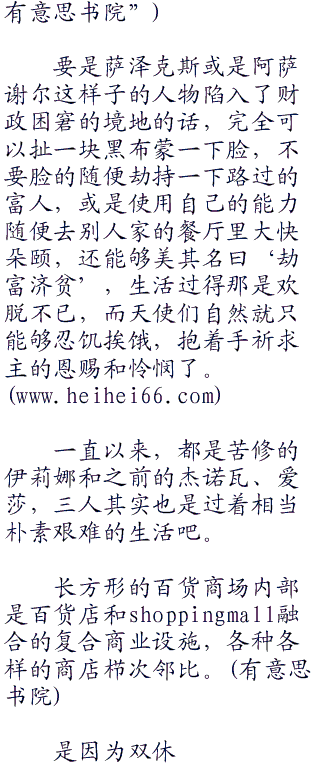 有意思书院”)
要是萨泽克斯或是阿萨
谢尔这样子的人物陷入了财
政困窘的境地的话，完全可
以扯一块黑布蒙一下脸，不
要脸的随便劫持一下路过的
富人，或是使用自己的能力
随便去别人家的餐厅里大快
朵颐，还能够美其名曰‘劫
富济贫’，生活过得那是欢
脱不已，而天使们自然就只
能够忍饥挨饿，抱着手祈求
主的恩赐和怜悯了。
(www.heihei66.com)
一直以来，都是苦修的
伊莉娜和之前的杰诺瓦、爱
莎，三人其实也是过着相当
朴素艰难的生活吧。
长方形的百货商场内部
是百货店和shoppingmall融
合的复合商业设施，各种各
样的商店栉次邻比。(有意思
书院)
是因为双休